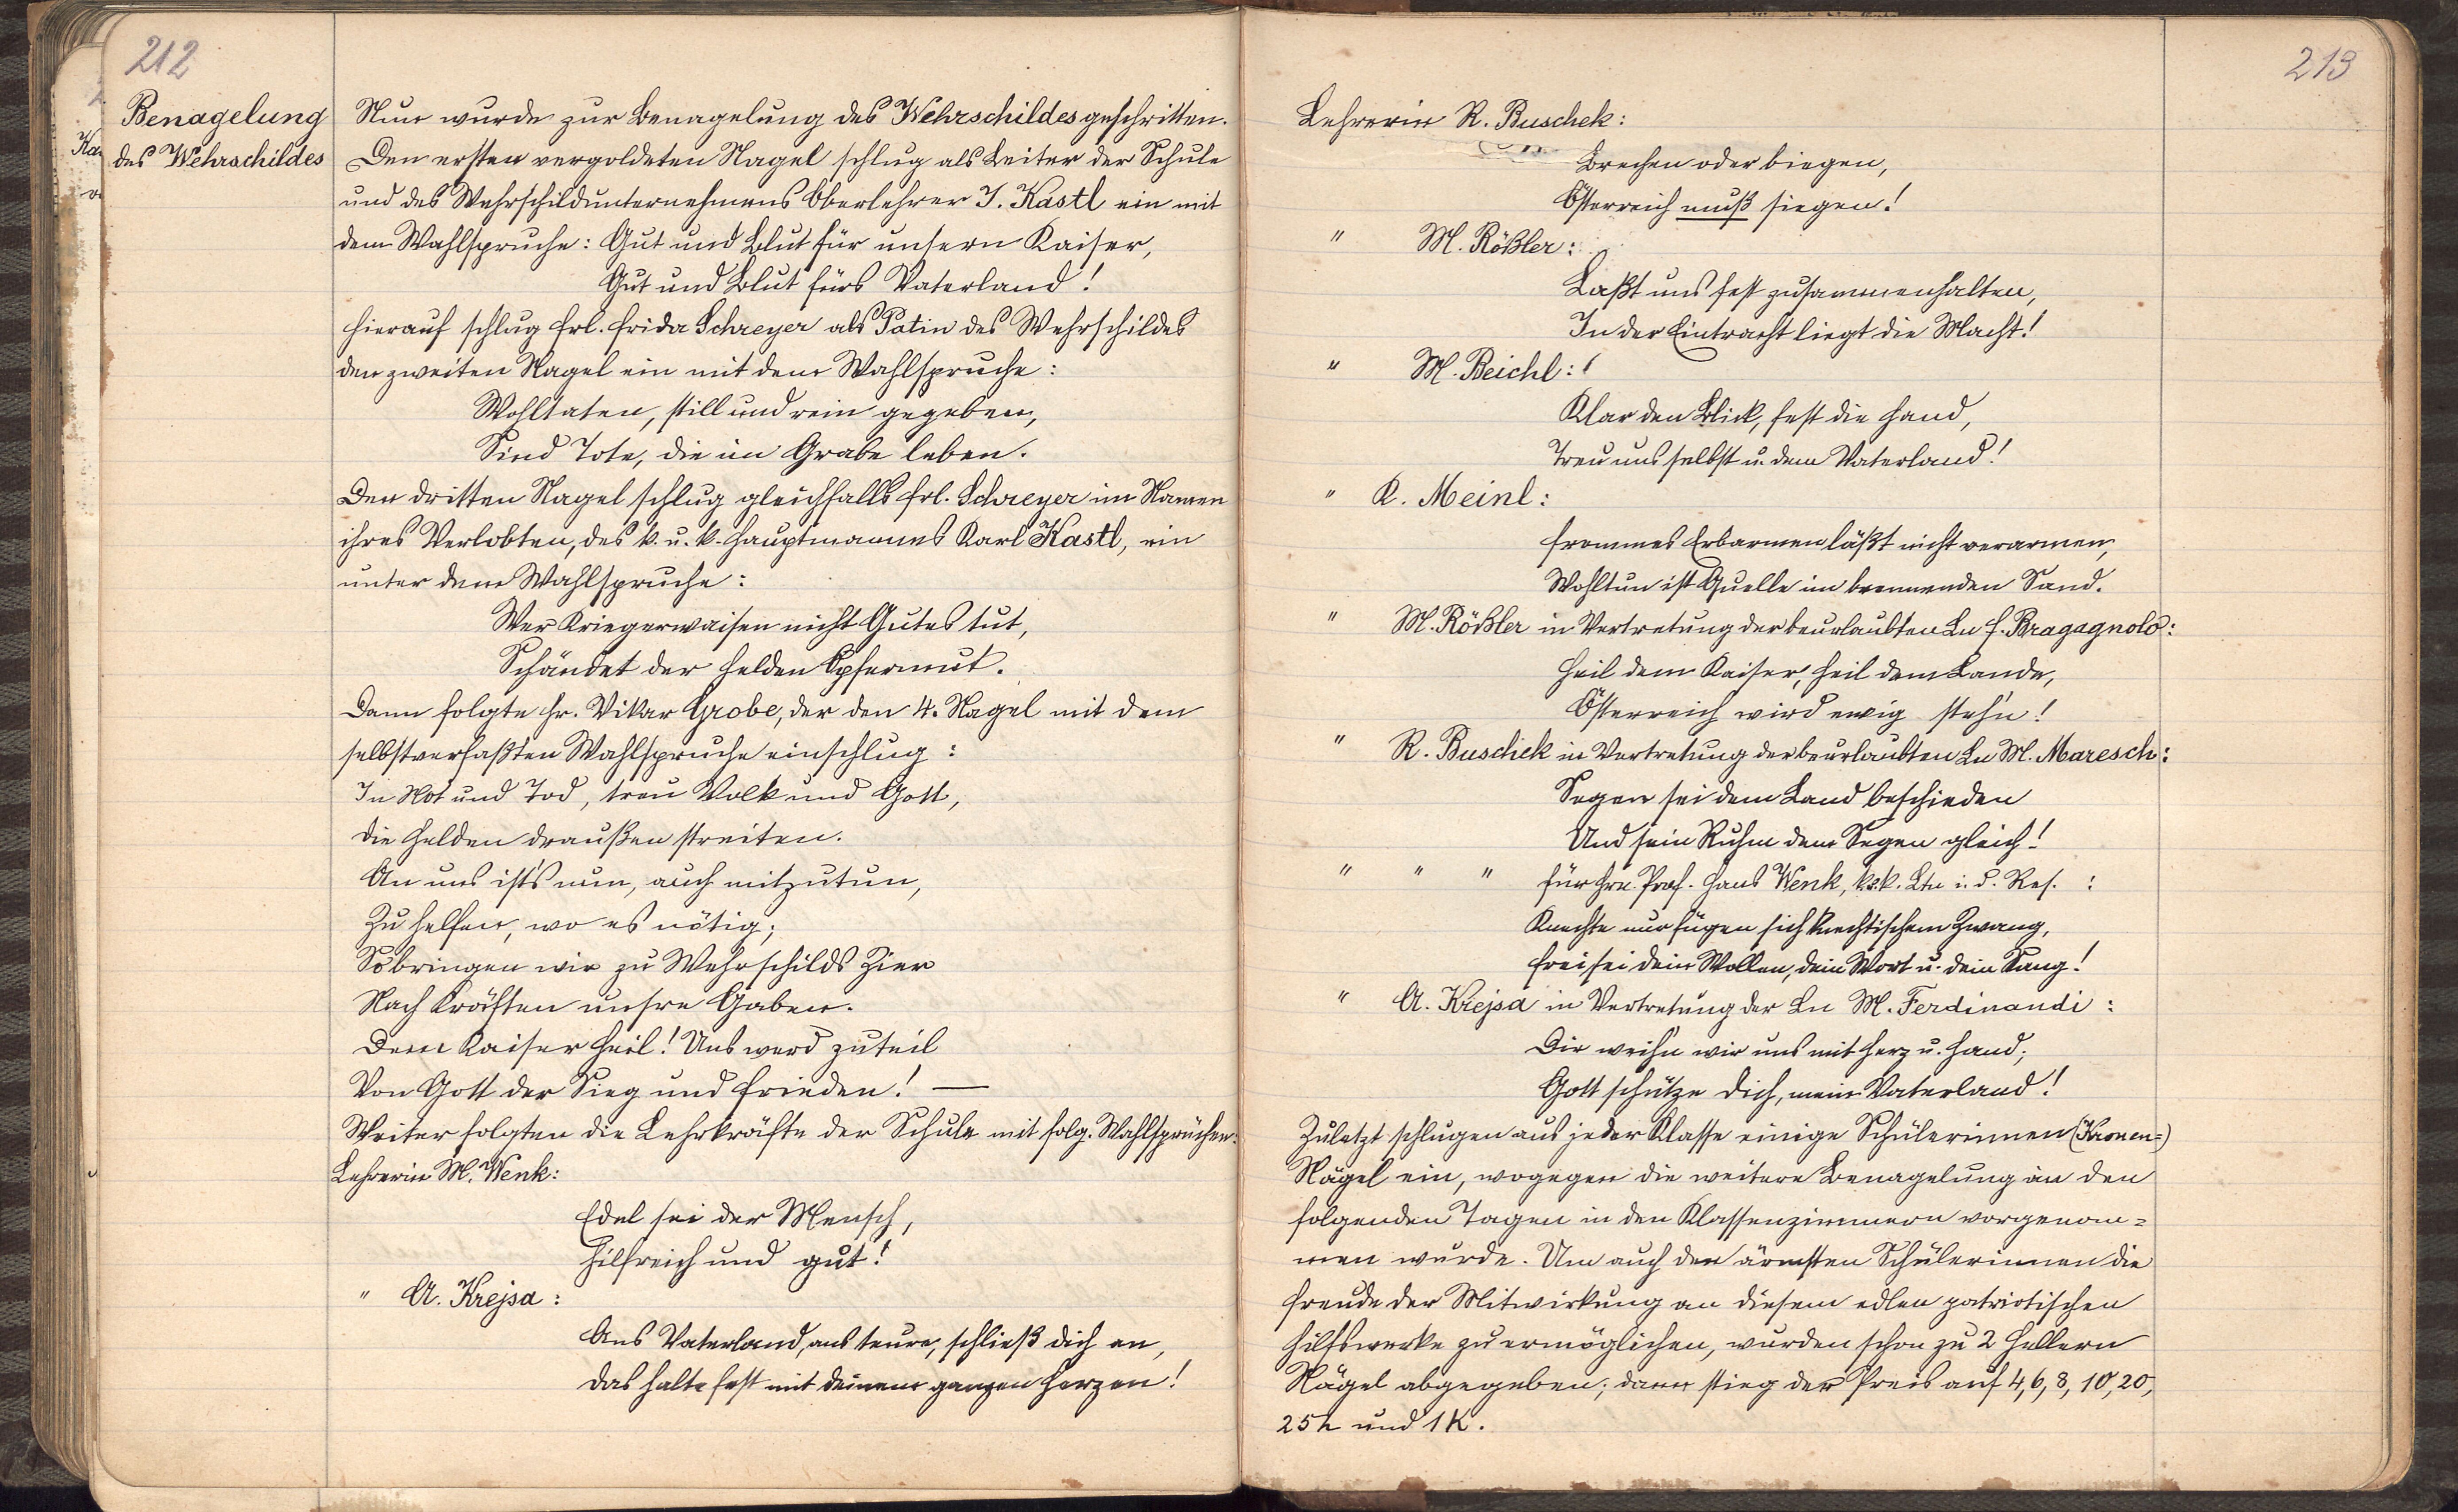 212
Benagelung
des Wehrschildes
Nun wurde zur Benagelung des Wehrschildes geschritten.
Den ersten vergoldeten Nagel schlug als Leiter der Schule
und des Wehrschildunternehmens Oberlehrer J. Kastl ein mit
dem Wahlspruche: Gut und Blut für unsern Kaiser,
Gut und Blut fürs Vaterland!
Hierauf schlug Frl. Frida Schreyer als Patin des Wehrschildes
den zweiten Nagel ein mit dem Wahlspruche:
Wohltaten, still und rein gegeben,
Sind Tote, die im Grabe leben.
Den dritten Nagel schlug gleichfalls Frl. Schreyer im Namen
ihres Verlobten, des k. u. k. Hauptmannes Karl Kastl, ein
unter dem Wahlspruche:
Wer Kriegerwaisen nicht Gutes tut,
Schändet der Helden Opfermut.
Dann folgte Hr. Vikar Grobe, der den 4. Nagel mit dem
selbstverfaßten Wahlspruche einschlug:
In Not und Tod, treu Volk und Gott,
die Helden draußen streiten.
An uns ist's nun, auch mitzutun,
Zu helfen, wo es nötig;
So bringen wir zu Wehrschilds Zier
Nach Kräften unsre Gaben.
Dem Kaiser Heil! Uns werd zuteil
Von Gott der Sieg und Frieden! —
Weiter folgten die Lehrkräfte der Schule mit folg. Wahlsprüchen:
Lehrerin M. Wenk:
Edel sei der Mensch,
Hilfreich und gut!
" A. Krejsa:
Ans Vaterland, ans teure, schließ dich an,
das halte fest mit deinem ganzen Herzen!
213
Lehrerin R. Buschek:
Brechen oder biegen,
Österreich muß siegen!
" M. Rößler:
Laßt uns fest zusammenhalten,
In der Eintracht liegt die Macht!
" M. Beichl:
Klar den Blick, fest die Hand,
Treu uns selbst u. dem Vaterland!
" K. Meinl:
Frommes Erbarmen läßt nicht verarmen,
Wohltun ist Quelle im brennenden Sand.
" M. Rößler in Vertretung der beurlaubten Ln F. Bragagnolo:
Heil dem Kaiser, Heil dem Lande,
Österreich wird ewig steh'n!
" R. Buschek in Vertretung der beurlaubten Ln M. Maresch:
Segen sei dem Land beschieden
Und sein Ruhm dem Segen gleich!
" " " für Hrn. Prof. Hans Wenk, k. k. Ltn i. d. Res. :
Knechte nur fügen sich knechtischem Zwang,
Frei sei dein Wollen, dein Wort u. dein Sang!
" A. Krejsa in Vertretung der Ln M. Ferdinandi:
Dir weih'n wir uns mit Herz u. Hand;
Gott schütze dich, mein Vaterland!
Zuletzt schlugen aus jeder Klasse einige Schülerinnen (Kronen=)
Nägel ein, wogegen die weitere Benagelung an den
folgenden Tagen in den Klassenzimmern vorgenom=
men wurde. Um auch den ärmsten Schülerinnen die
Freude der Mitwirkung an diesem edlen patriotischen
Hilfswerke zu ermöglichen, wurden schon zu 2 Hellern
Nägel abgegeben; dann stieg der Preis auf 4, 6, 8, 10, 20,
25 h und 1 K.